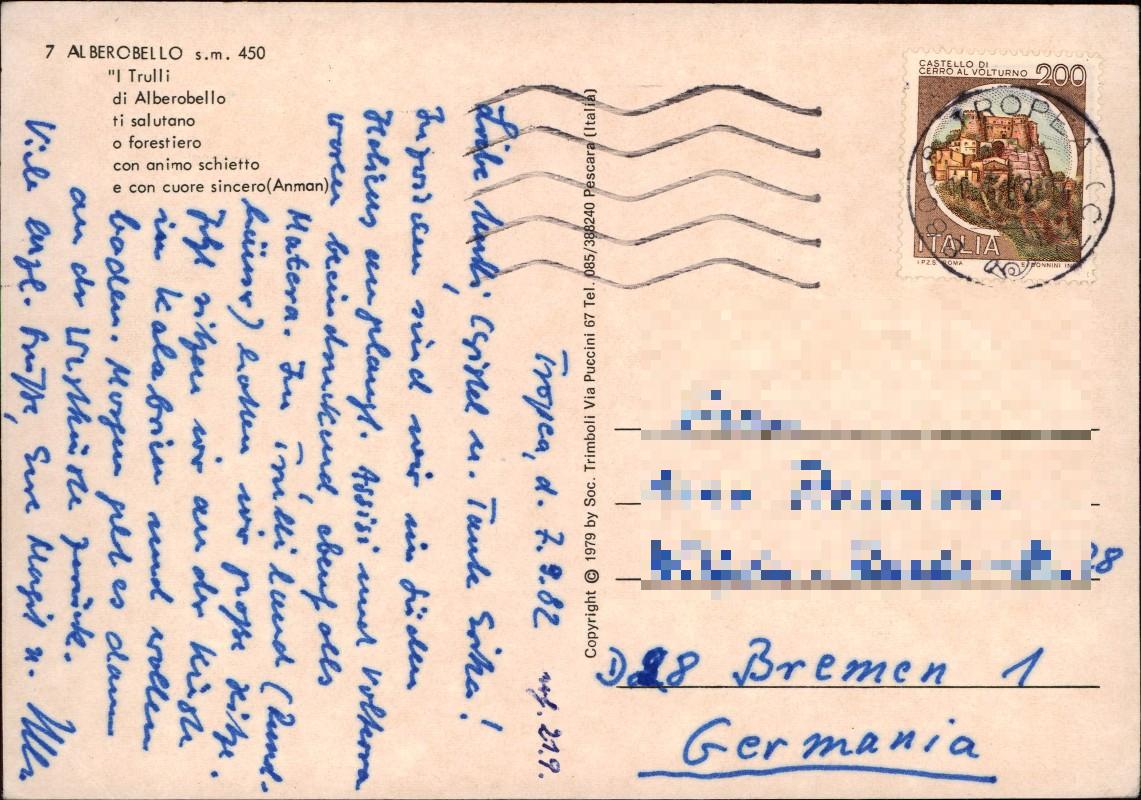 7 ALBEROBELLO s.m. 450
"I Trulli
di Alberobello
ti salutano
o forestiero
con animo schietto
e con cuore sincero (Anman)
Tropea, d. 7.9.82
21.9.
Liebe u. Tante Erika!
Inzwischen sind wir im Süden
Italiens angelangt. Assisi und Volterra
waren beeindruckend, ebenso
Matera. Im Trulli Land (Rund-
häuser) hatten wir große Hitze.
Jetzt sitzen wir an der Küste
in Kalabrien und wollen
baden. Morgen geht es dann
an der Westküste zurück.
Viele herzl. Grüße, Eure Margit u.
Copyright © 1979 by Soc. Trimboli Via Puccini 67 Tel. 085/388240 Pescara (Italia)
CASTELLO DI
CERRO AL VOLTURNO 200
ITALIA
I.P.Z.S. ROMA
TROPEA
28 Bremen 1
Germania